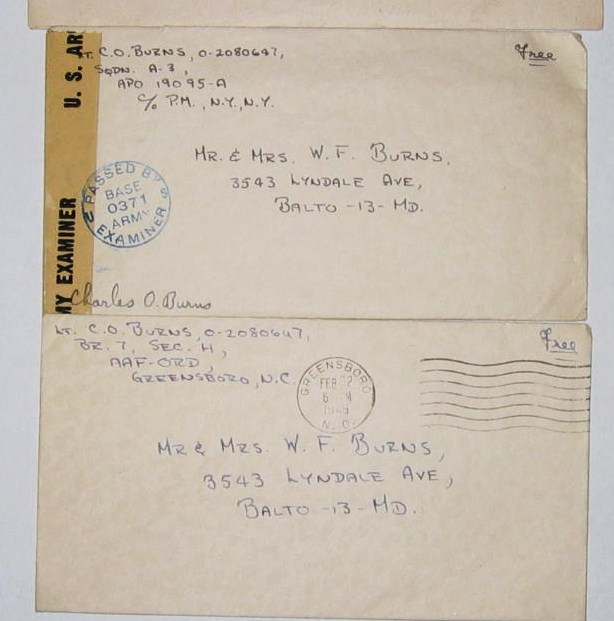 U. S. AR
MY EXAMINER
LT. C.O. BURNS, O-2080647,
SQDN. A-3,
APO 19095-A
C/O P.M., N.Y., N.Y.
Free
PASSED BY
BASE
0371
ARMY
EXAMINER
MR. & MRS. W. F. BURNS,
3543 LYNDALE AVE,
BALTO -13- MD.
Charles O. Burns
LT. C.O. BURNS, O-2080647,
BR. 7, SEC. H,
AAF-ORD,
GREENSBORO, N.C.
Free
GREENSBORO
FEB
N. C.
MR & MRS. W. F. BURNS,
3543 LYNDALE AVE,
BALTO -13- MD.